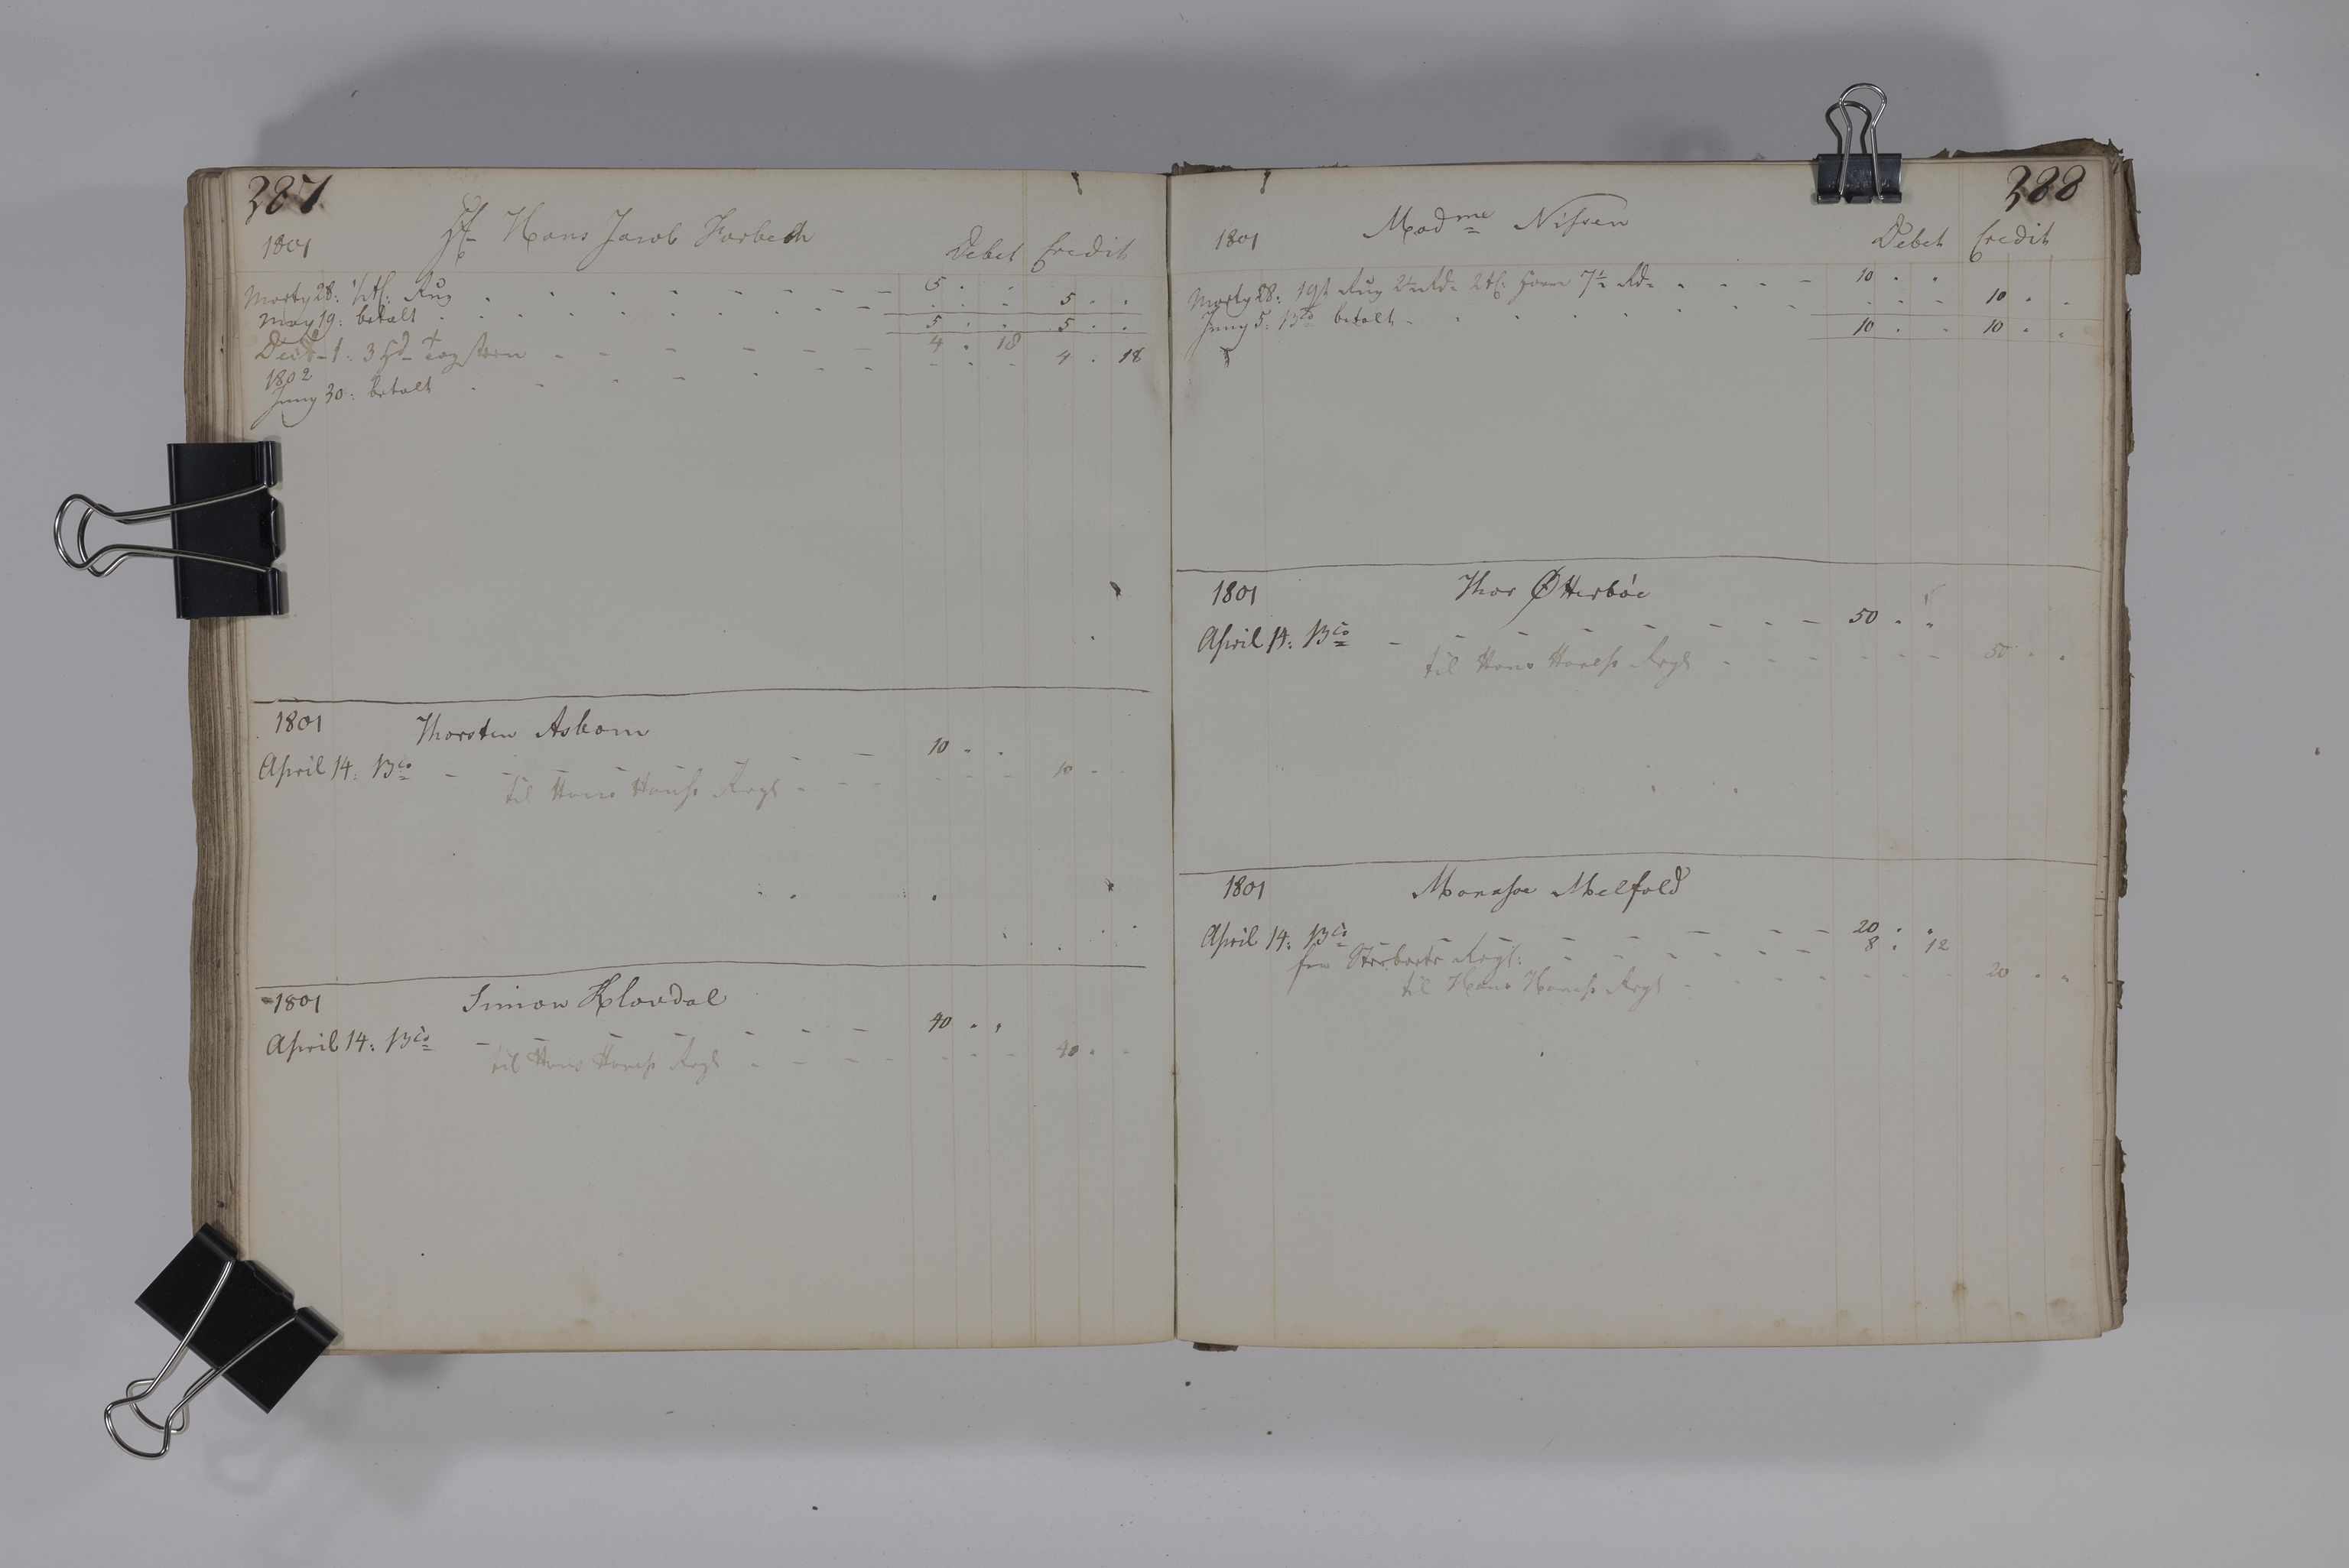 387
Hr Hans Jacob Forbech
1801 Debet Credit
Marty 28: ½ tl: Rug 5 . .
May 19: betalt 5 . .
5 . . 5 . .
Decb 1: 3 Hd Tagsteen 4 . 18
1802
Juny 30: betalt 4 . 18
1801 Thorsten Askom
April 14: Bco 10 . .
til Hans Hansß Regt 10 . .
1801 Simon Klovdal
April 14: Bco 40 . .
til Hans Hansß Regt 40 . .
388
Madme Nissen
1801 Debet Credit
Marty 28: Rug 2½ Rd 2 tl: 7½ Rd 10 . .
Juny 5: Bco betalt 10 . .
10 . . 10 . .
1801 Thor Øtterböe
April 14: Bco 50 . .
til Hans Hansß Regt 50 . .
1801 Monsse Melfald
April 14: Bco 20 . .
fra Sterboets Regt: 8 . 12
til Hans Hansß Regt 20 . .